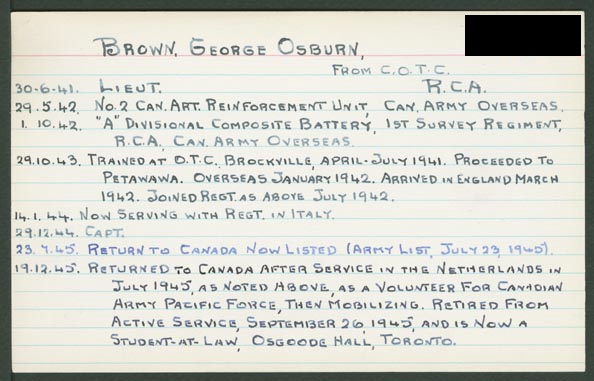 BROWN, GEORGE OSBURN,
FROM C.O.T.C.
30-6-41. LIEUT. R.C.A.
29.5.42. NO.2 CAN. ART. REINFORCEMENT UNIT, CAN. ARMY OVERSEAS.
1.10.42. "A" DIVISIONAL COMPOSITE BATTERY, 1ST SURVEY REGIMENT,
R.C.A. CAN. ARMY OVERSEAS.
29.10.43. TRAINED AT O.T.C. BROCKVILLE, APRIL-JULY 1941. PROCEEDED TO
PETAWAWA. OVERSEAS JANUARY 1942. ARRIVED IN ENGLAND MARCH
1942. JOINED REGT. AS ABOVE JULY 1942.
14.1.44. NOW SERVING WITH REGT. IN ITALY.
29.12.44. CAPT.
23.7.45. RETURN TO CANADA NOW LISTED (ARMY LIST, JULY 23, 1945).
19.12.45. RETURNED TO CANADA AFTER SERVICE IN THE NETHERLANDS IN
JULY 1945, AS NOTED ABOVE, AS A VOLUNTEER FOR CANADIAN
ARMY PACIFIC FORCE, THEN MOBILIZING. RETIRED FROM
ACTIVE SERVICE, SEPTEMBER 26, 1945, AND IS NOW A
STUDENT-AT-LAW, OSGOODE HALL, TORONTO.